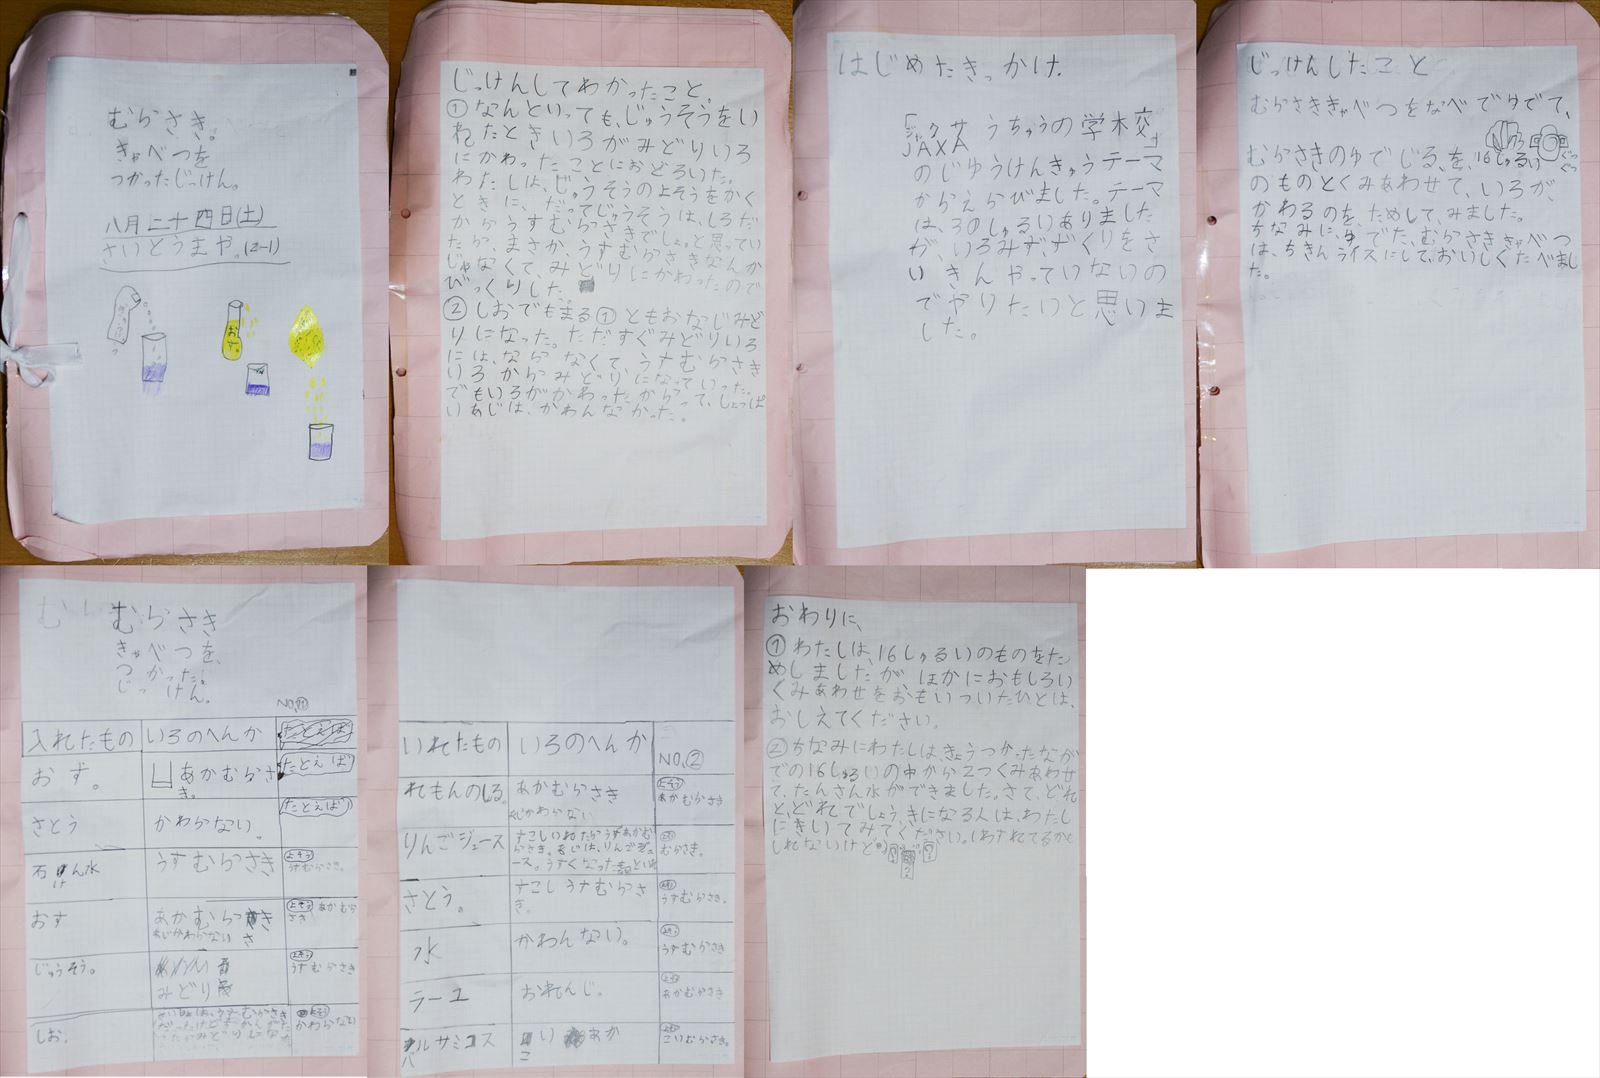 むらさき。
きゃべつを
つかったじっけん。
八月二十四日(土)
さいとうまや。(2-1)
おす。
じっけんしてわかったこと、
①なんといっても、じゅうそうをい
れたときいろがみどりいろ
にかわったことにおどろいた。
わたしは、じゅうそうの上そうをかく
ときに、だってじゅうそうは、しろだ
からうすむらさきでしょ。と思ってい
たら、まさか、うすむらさきなんか
じゃなくて、みどりにかわったので
びっくりした。
②しおでもまる①ともおなじみど
りになった。ただすぐみどりいろ
には、ならなくて、うすむらさき
いろからみどりになっていった。
でもいろがかわったからって、しょっぱ
いあじは、かわんなかった。
はじめたきっかけ.
「ジャクサ うちゅうの学校」
JAXA
のじゆうけんきゅうテーマ
からえらびました。テーマ
は、30しゅるいありました
が、いろみず、ずくりをさ
いきんやっていないの
でやりたいと思いま
した。
じっけんしたこと
むらさききゃべつをなべでゆでて、
むらさきのゆでじる、を、16しゅるい
ぐつぐつ
のものとくみあわせて、いろが、
かわるのを、ためして、みました。
ちなみに、ゆでた、むらさききゃべつ
は、ちきんライスにして、おいしくたべまし
た。
むらさき
きゃべつを、
つかった。
じっけん。
NO,①
入れたもの いろのへんか たとえば
おす。 あかむらさき。 たとえば
さとう かわらない。 たとえば
石けん水 うすむらさき よそう
おす あかむらさき あじかわらない よそう あかむらさき
じゅうそう。 みどり よそう うすむらさき
しお. よそう かわらない
いれたもの いろのへんか NO,②
れもんのしる。 あかむらさき あじかわらない よそう あかむらさき
りんごジュース すこしいれたらうすあかむらさき。あじは、りんごジュース。うすくなった よそう むらさき。
さとう。 すこしうすむらさき。 よそう うすむらさき.
水 かわんない。 よそう うすむらさき
ラーユ おれんじ。 よそう あかむらさき
バルサミコス こいあか よそう こいむらさき。
おわりに、
①わたしは、16しゅるいのものをた
めしましたがほかにおもしろい
くみあわせをおもいついたひとは、
おしえてください。
②ちなみにわたしは、きょうつかったなか
での16しゅるいの中から2つくみあわせ
て、たんさん水ができました。さて、どれ
と、どれでしょう、きになる人は、わたし
にきいてみてください。(わすれてるかも
しれないけど